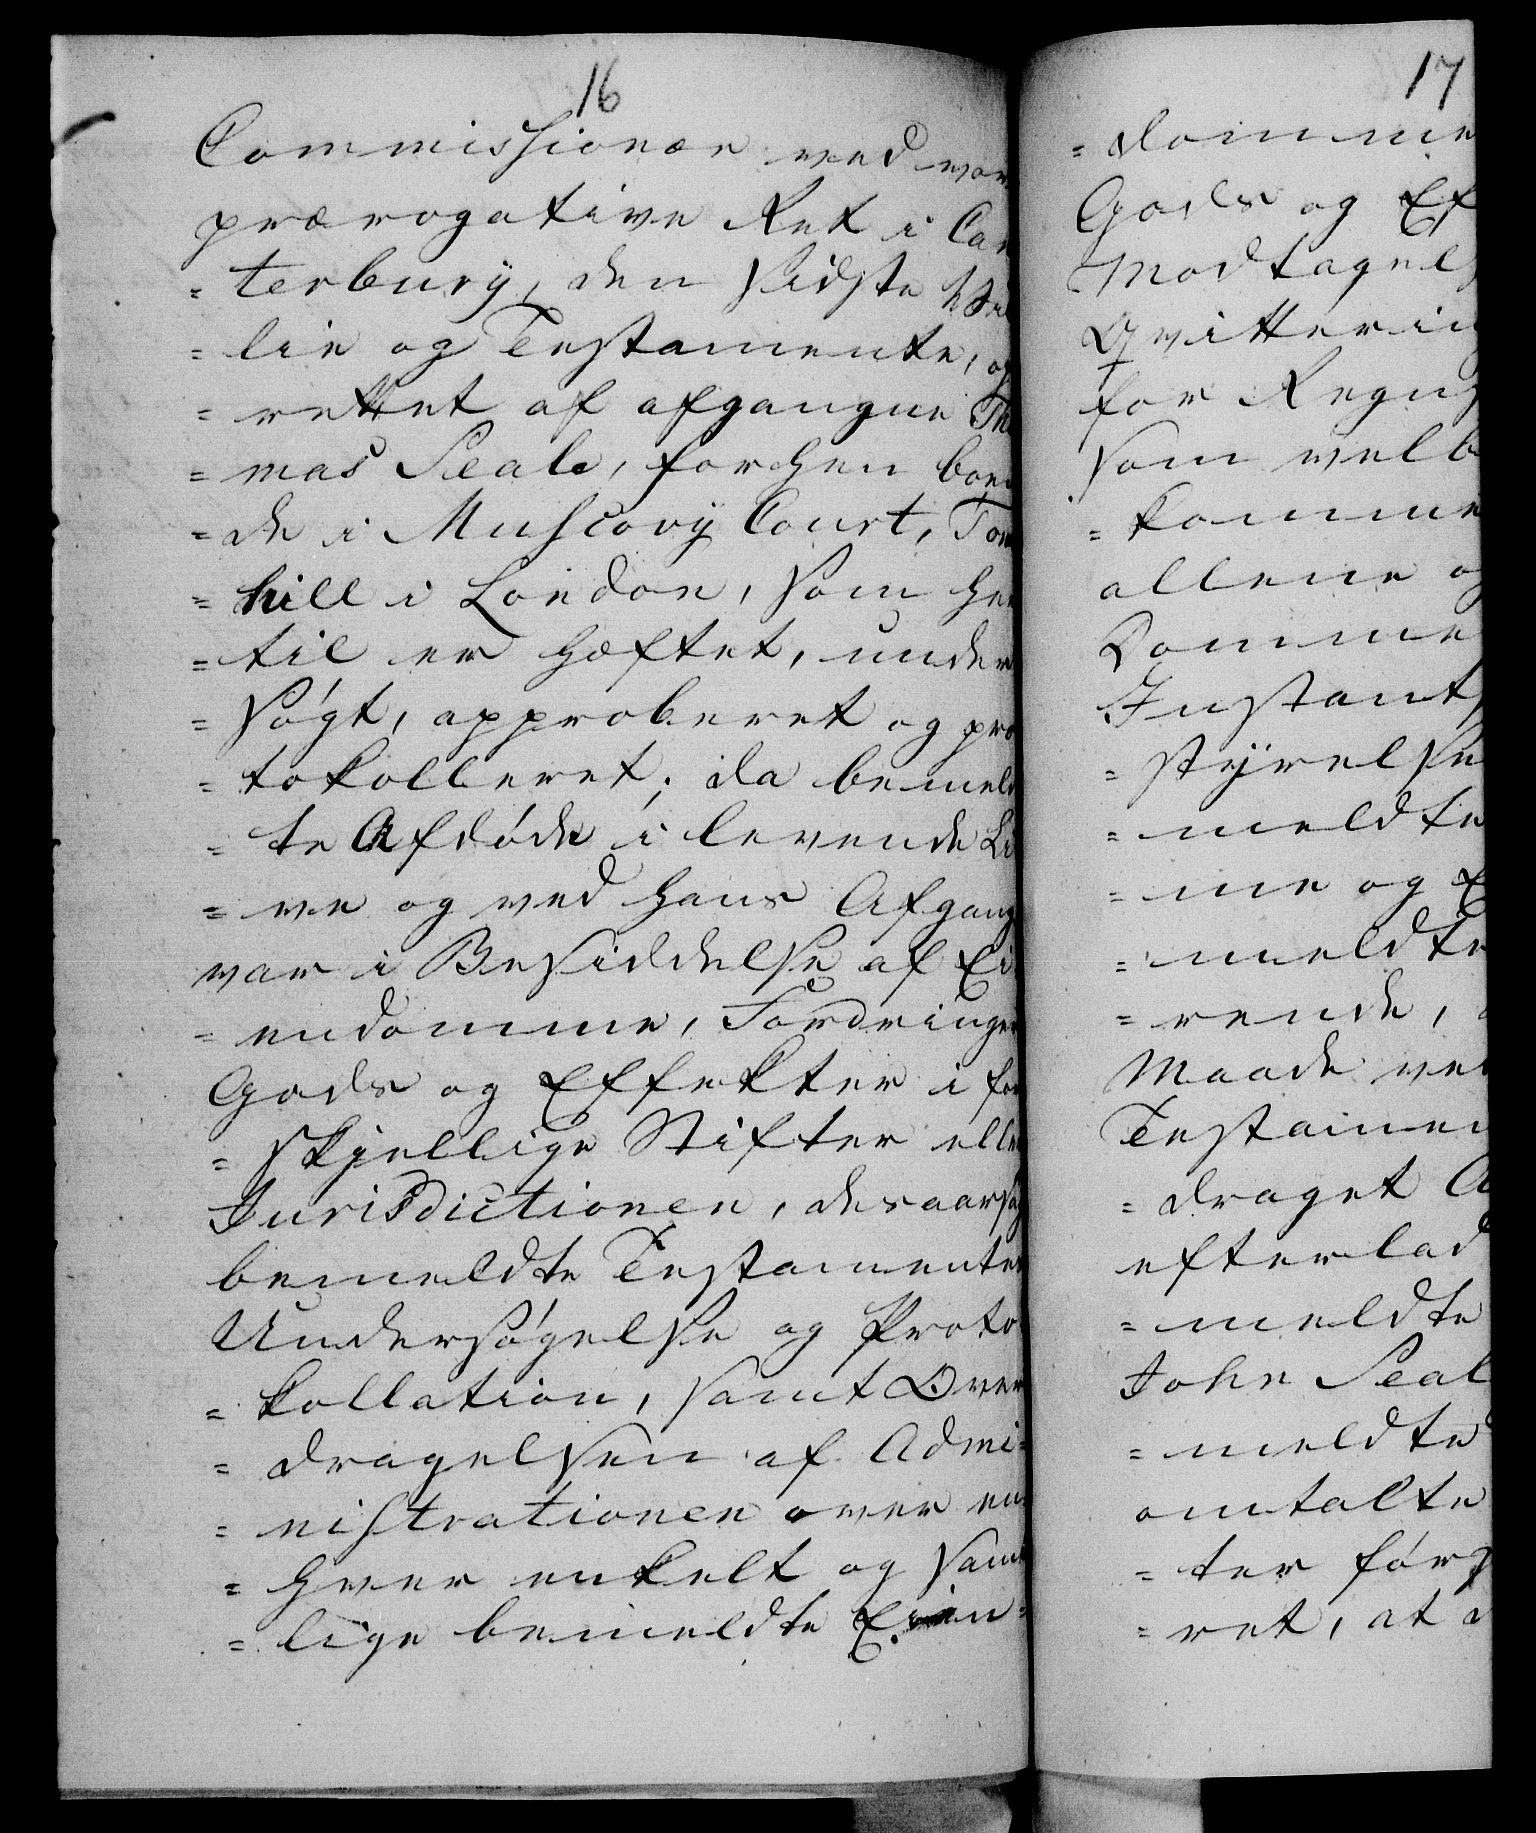 16
Commissionær ved vor
prærogative Ret i Can
= terbury, den sidste Vil
= lie og Testamente, op
= rettet af afgangne Tho
= mas Seale, forhen boen
= de i Muscovy Court, Tow
= hill i London, som her
= til er hæftet, under
= søgt, approberet og pro
= tokolleret; da bemeld
= te Afdøde i levende Li
= ve og ved hans Afgang
var i Besiddelse af Ei
= endomme, Fordringer
Gods og Effekter i for
= skjellige Stifter eller
Jurisdictionen, desaarsag
bemeldte Testamentes
Undersøgelse og Proto
= kollation, samt Over
= dragelsen af Admi=
= nistrationen over en
= hver enkelt og samt
= lige bemeldte Eien=
17
= domme
Gods og Ef
Modtagels
Qvittering
for Regns
som velb
= komme
allene og
Domme
Instants
= styrelse
= meldte
= me og E
= meldte
= rende,
Maade ved
Testamen
= draget A
efterlad
= meldte
John Seal
= meldte
omtalte
= ter førs
= ret, at